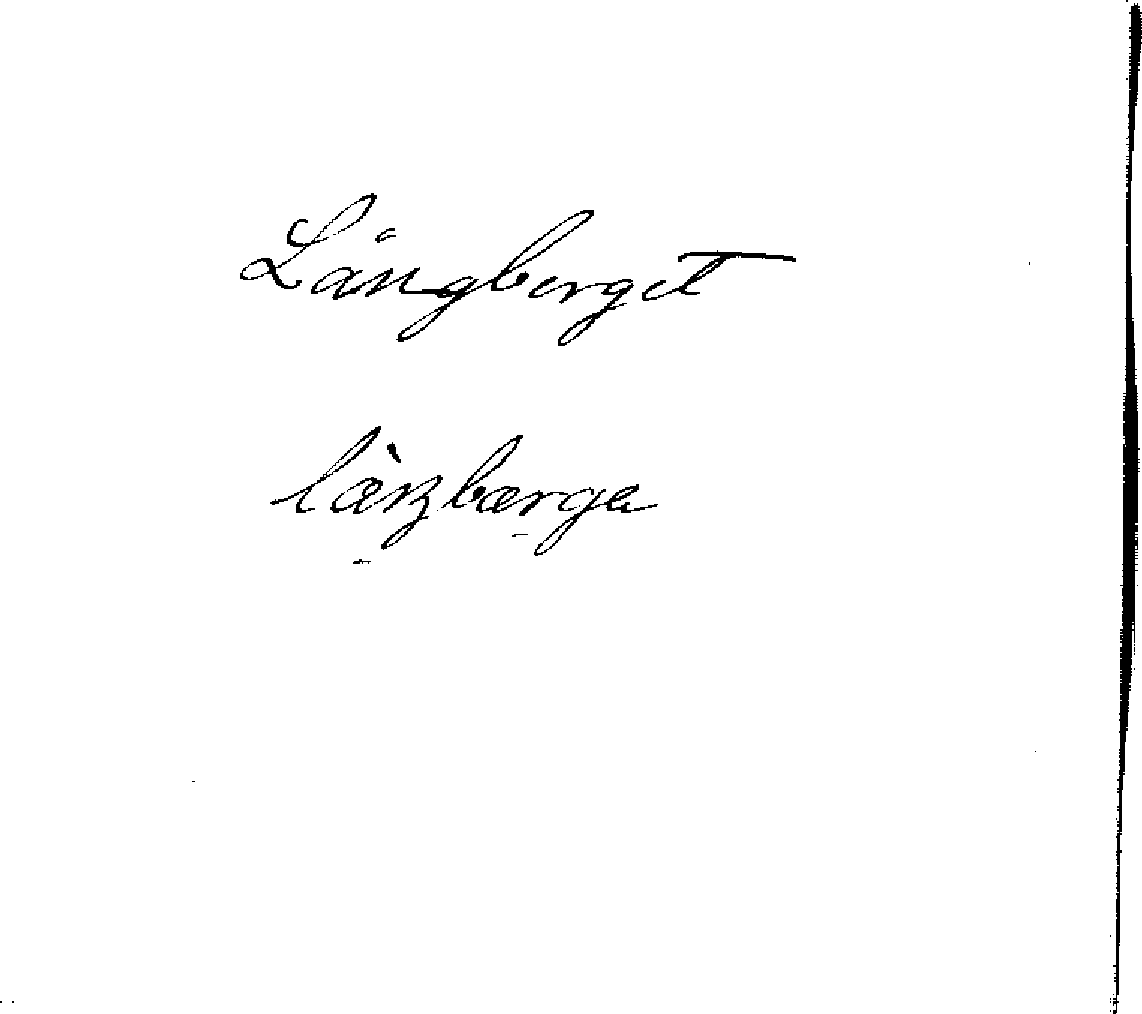 Långberget
læ̀ŋbærga